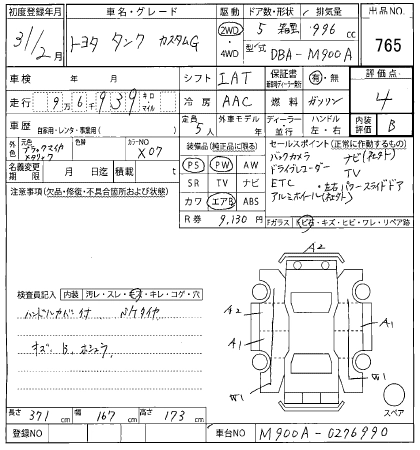 初度登録年月 車名・グレード 駆動 ドア数・形状 排気量 出品NO.
31/2月 トヨタ タンク カスタムG 2WD 4WD 5 996 cc 765
型式 DBA-M900A
車検 年 月 シフト IAT 保証書 有・無 評価点
走行 9万6千939 キロ マイル 冷房 AAC 燃料 ガソリン 4
車歴 自家用・レンタ・事業用( ) 定員 5人 外車モデル 年 ディーラー 並行 ハンドル 左・右 内装評価 B
外色 元色 ブラックマイカメタリック 色替 カラーNO X07 装備品(純正品に限る) セールスポイント(正常に作動するもの)
PS PW AW バックカメラ ナビ(社外)
ドライブレコーダー TV
名義変更期限 月 日迄 積載 t SR TV ナビ ETC ・左右パワースライドドア
注意事項(欠品・修復・不具合箇所および状態) カワ エアB ABS アルミホイール(社外)
R券 9,130円 Fガラス ヒ石・キズ・ヒビ・ワレ・リペア跡
A2
検査員記入 内装 汚レ・スレ・キズ・キレ・コゲ・穴
ハンドルカバー付 N/タイヤ A2 A1
キズ B、ホシュラ A1
W1 W1
スペア
長さ 371 cm 幅 167 cm 高さ 173 cm
登録NO 車台NO M900A-0276990